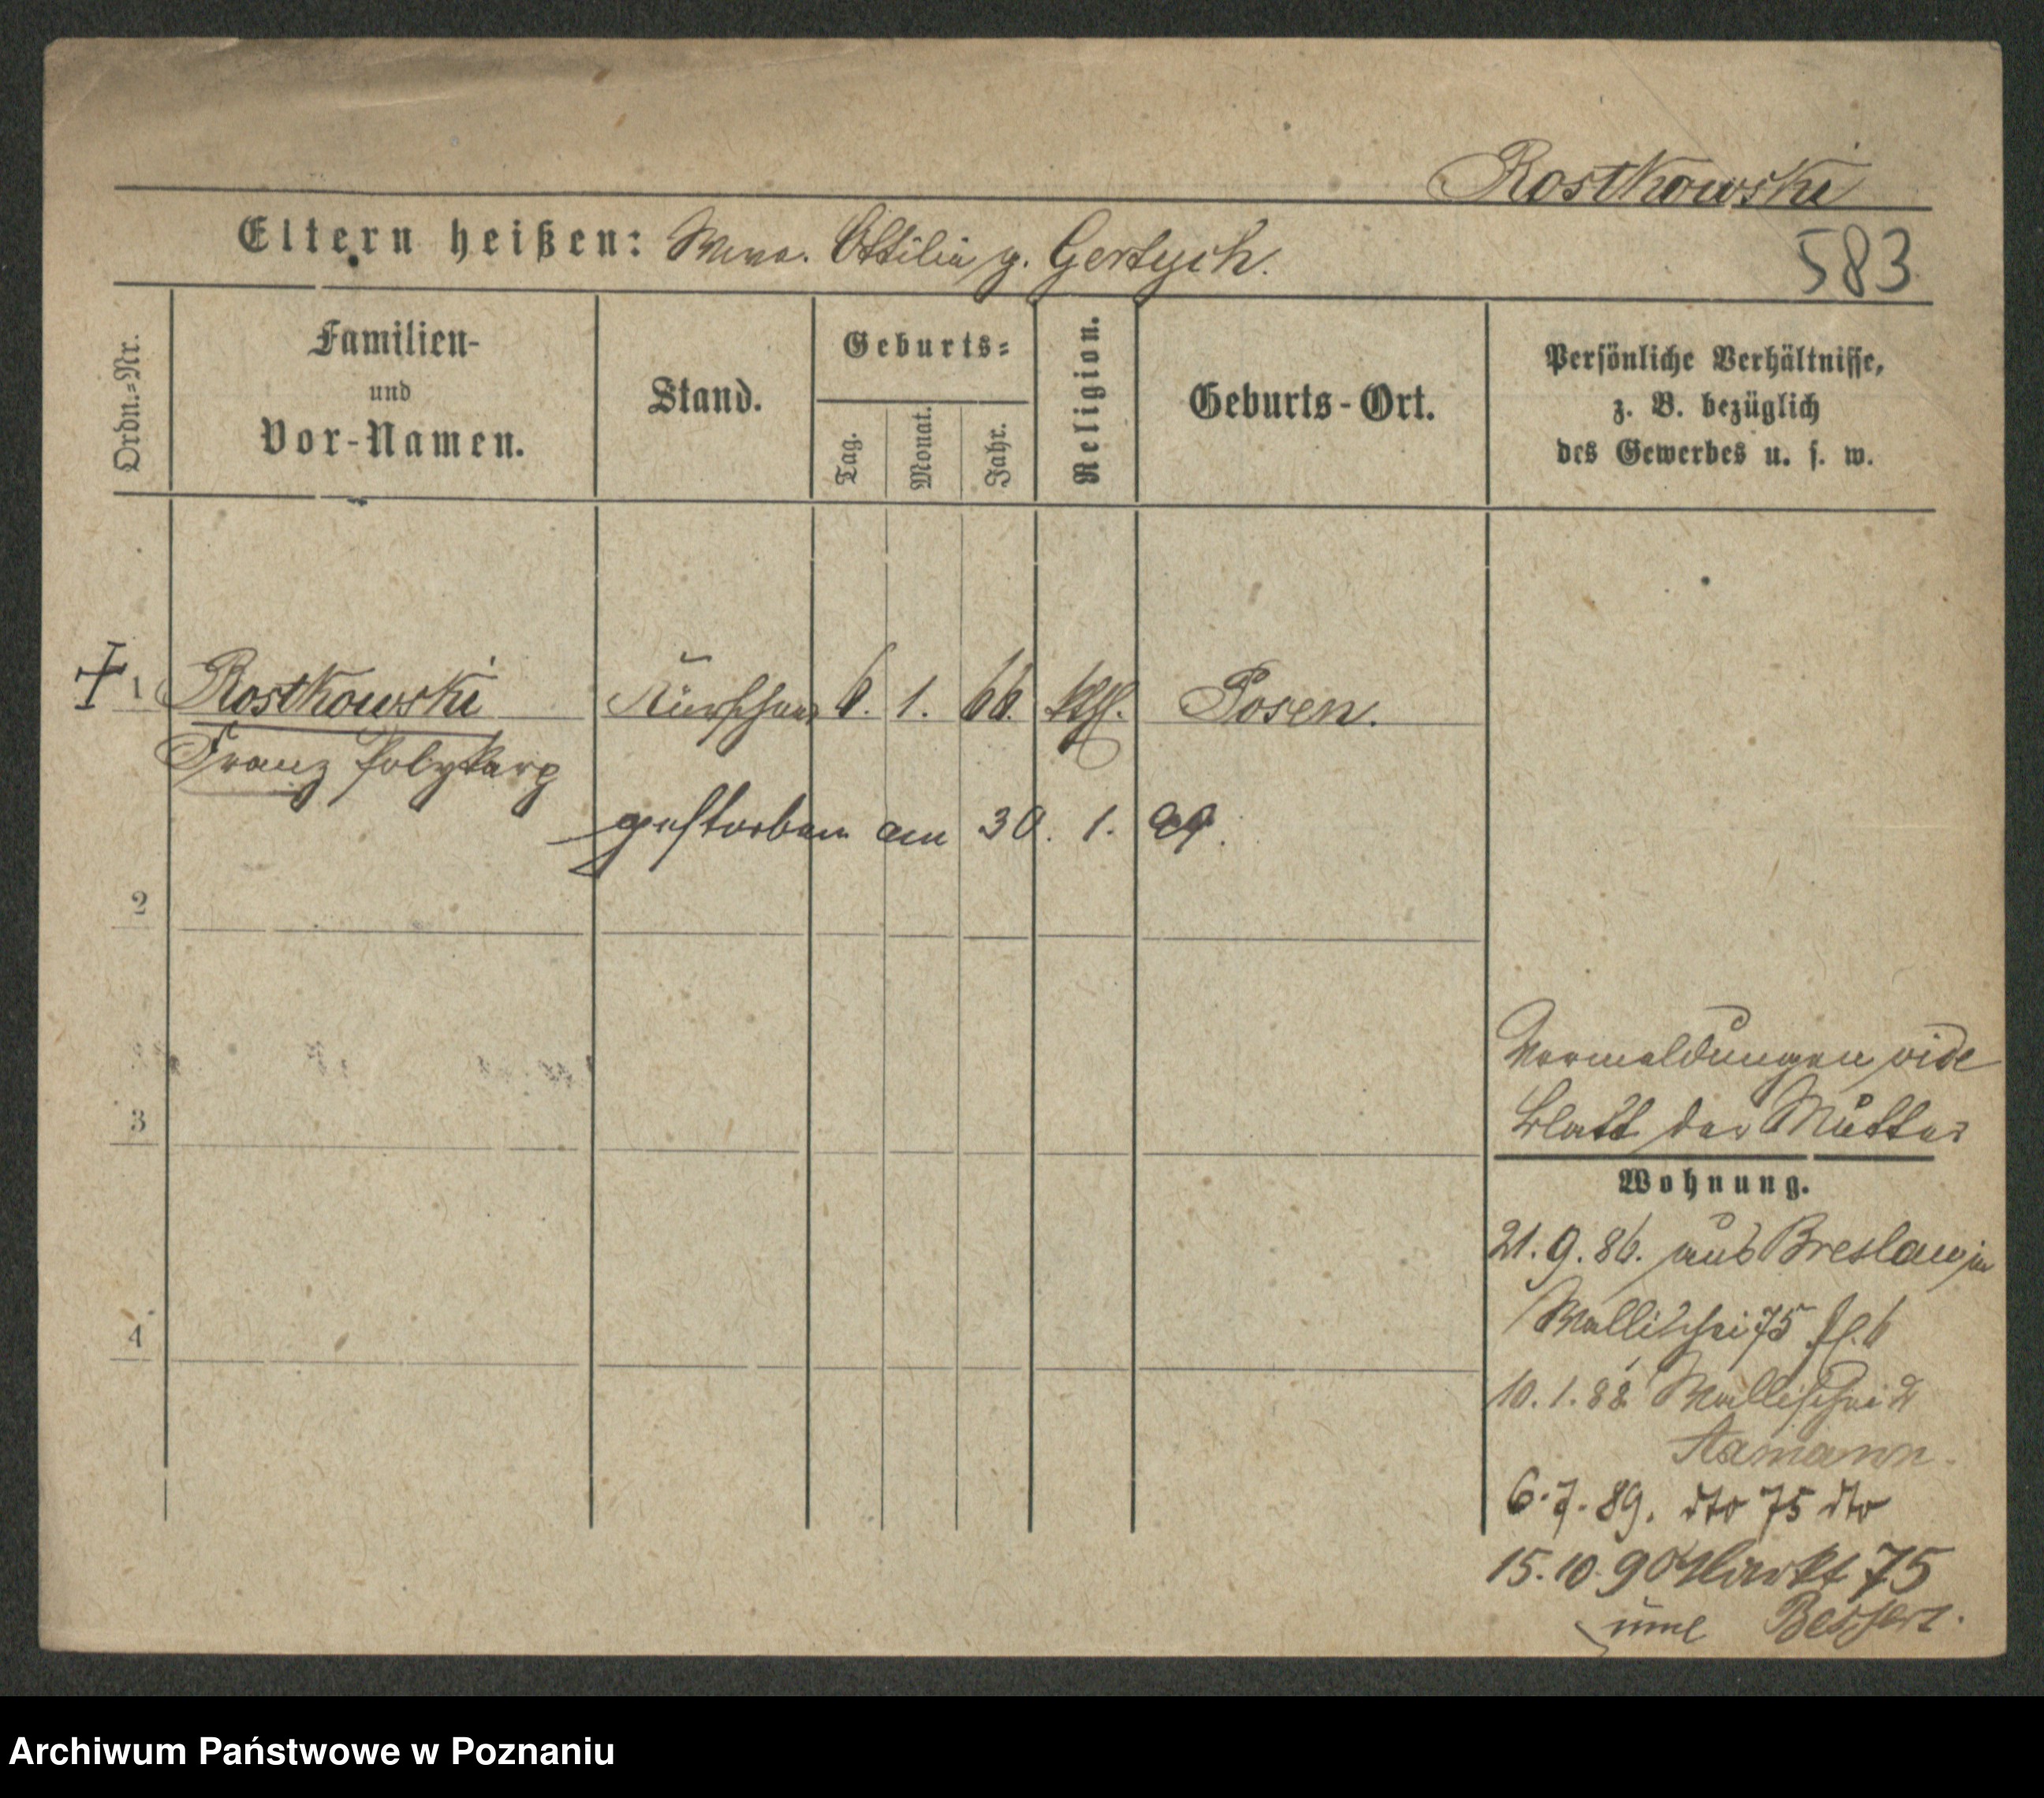 Rostkowski
Eltern heißen: Wwe. Ottilia g. Gertych.
583
Ordn.=Nr.
Familien-
und
Vor-Namen.
Stand.
Geburts=
Tag.
Monat.
Jahr.
Religion.
Geburts-Ort.
Persönliche Verhältnisse,
z. B. bezüglich
des Gewerbes u. s. w.
1 Rostkowski Kürschner 6. 1. 66. kth. Posen.
Franz Polykarp
gestorben am 30. 1. 99.
2
3
4
Vormeldungen vide
Blatt der Mutter
Wohnung.
21. 9. 86. aus Breslau in
Wallischei 75
10. 1. 88 Wallischei 2
6. 7. 89. dto 75 dto
15. 10. 90 Markt 75
Archiwum Państwowe w Poznaniu